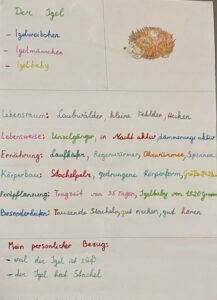 Der Igel
- Igelweibchen
- Igelmännchen
- Igelbaby
Lebensraum: Laubwälder, kleine Felder, Hecken
Lebensweise: Einzelgänger, in Nacht aktiv, dämmerungs aktiv
Ernährung: Laufkäfer, Regenwürmer, Ohrwürmer, Spinnen
Körperbau: Stachelpelz, gedrungene Körperform,
Fortpflanzung: Tragzeit von 35 Tagen, Igelbaby von 1220 Gramm
Besonderheiten: Tausende Stacheln, gut riechen, gut hören
Mein persönlicher Bezug:
- weil der Igel ist süß
- der Igel hat Stachel